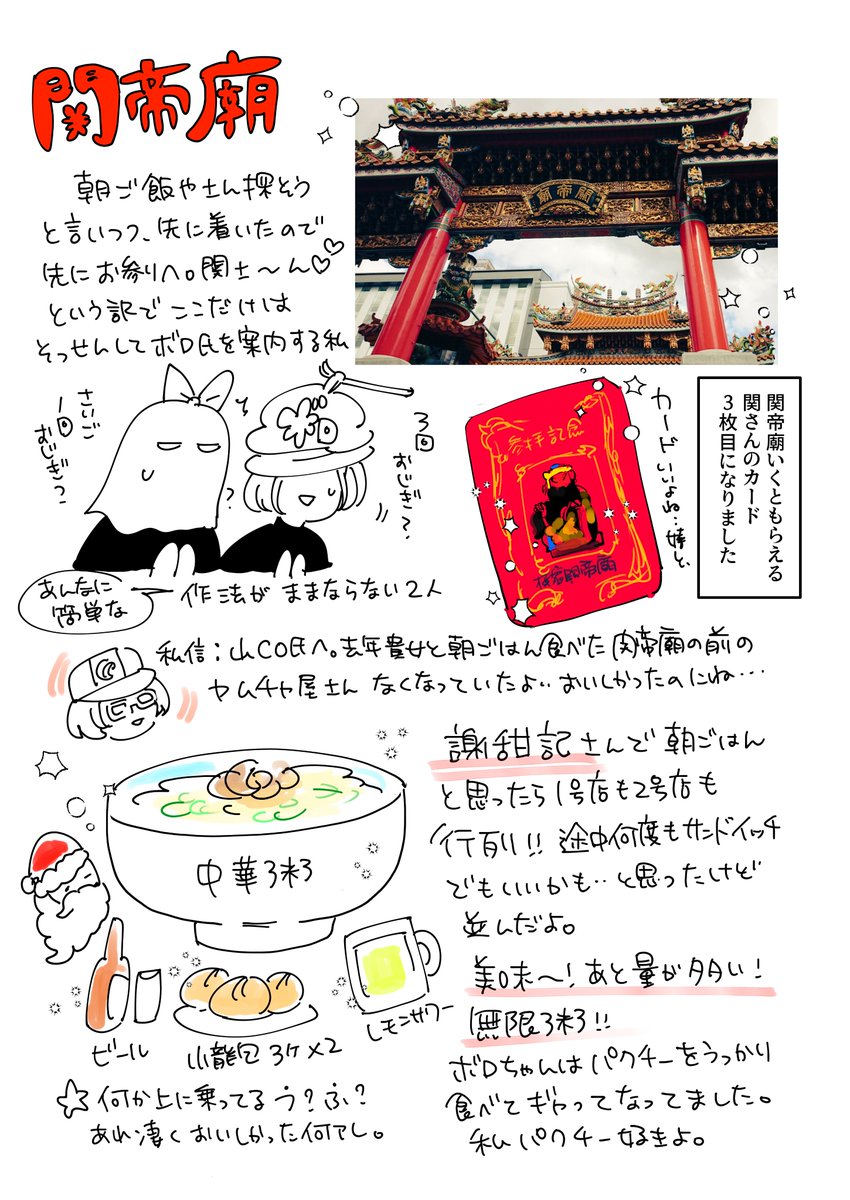 関帝廟
朝ご飯やさん探そう
と言いつつ、先に着いたので
先にお参りへ。関士〜ん♡♡
という訳でここだけは
そっせんしてボロ氏を案内する私
廟帝關
さいご
1回
おじぎっ
?
3回
おじぎ?
あんなに
簡単な
作法がままならない2人
参拝記念
カードいいよね…婦と、
関帝廟いくともらえる
関さんのカード
3枚目になりました
私信:山CO氏へ。去年貴女と朝ごはん食べた関帝廟の前の
ヤムチャ屋さんなくなっていたよ‥おいしかったのにね…
謝甜記さんで朝ごはん
と思ったら1号店も2号店も
行列!!途中何度もサンドイッチ
でもいいかも‥と思ったけど
並んだよ。
美味〜!あと量が多い!
無限粥!!
ボロちゃんはパクチーをうっかり
食べてギャってなってました。
私パクチー好きよ。
中華粥
ビール
小龍包3ケ×2
レモンサワー
☆何か上に乗ってるう?ふ?
あれ凄くおいしかった何アレ。